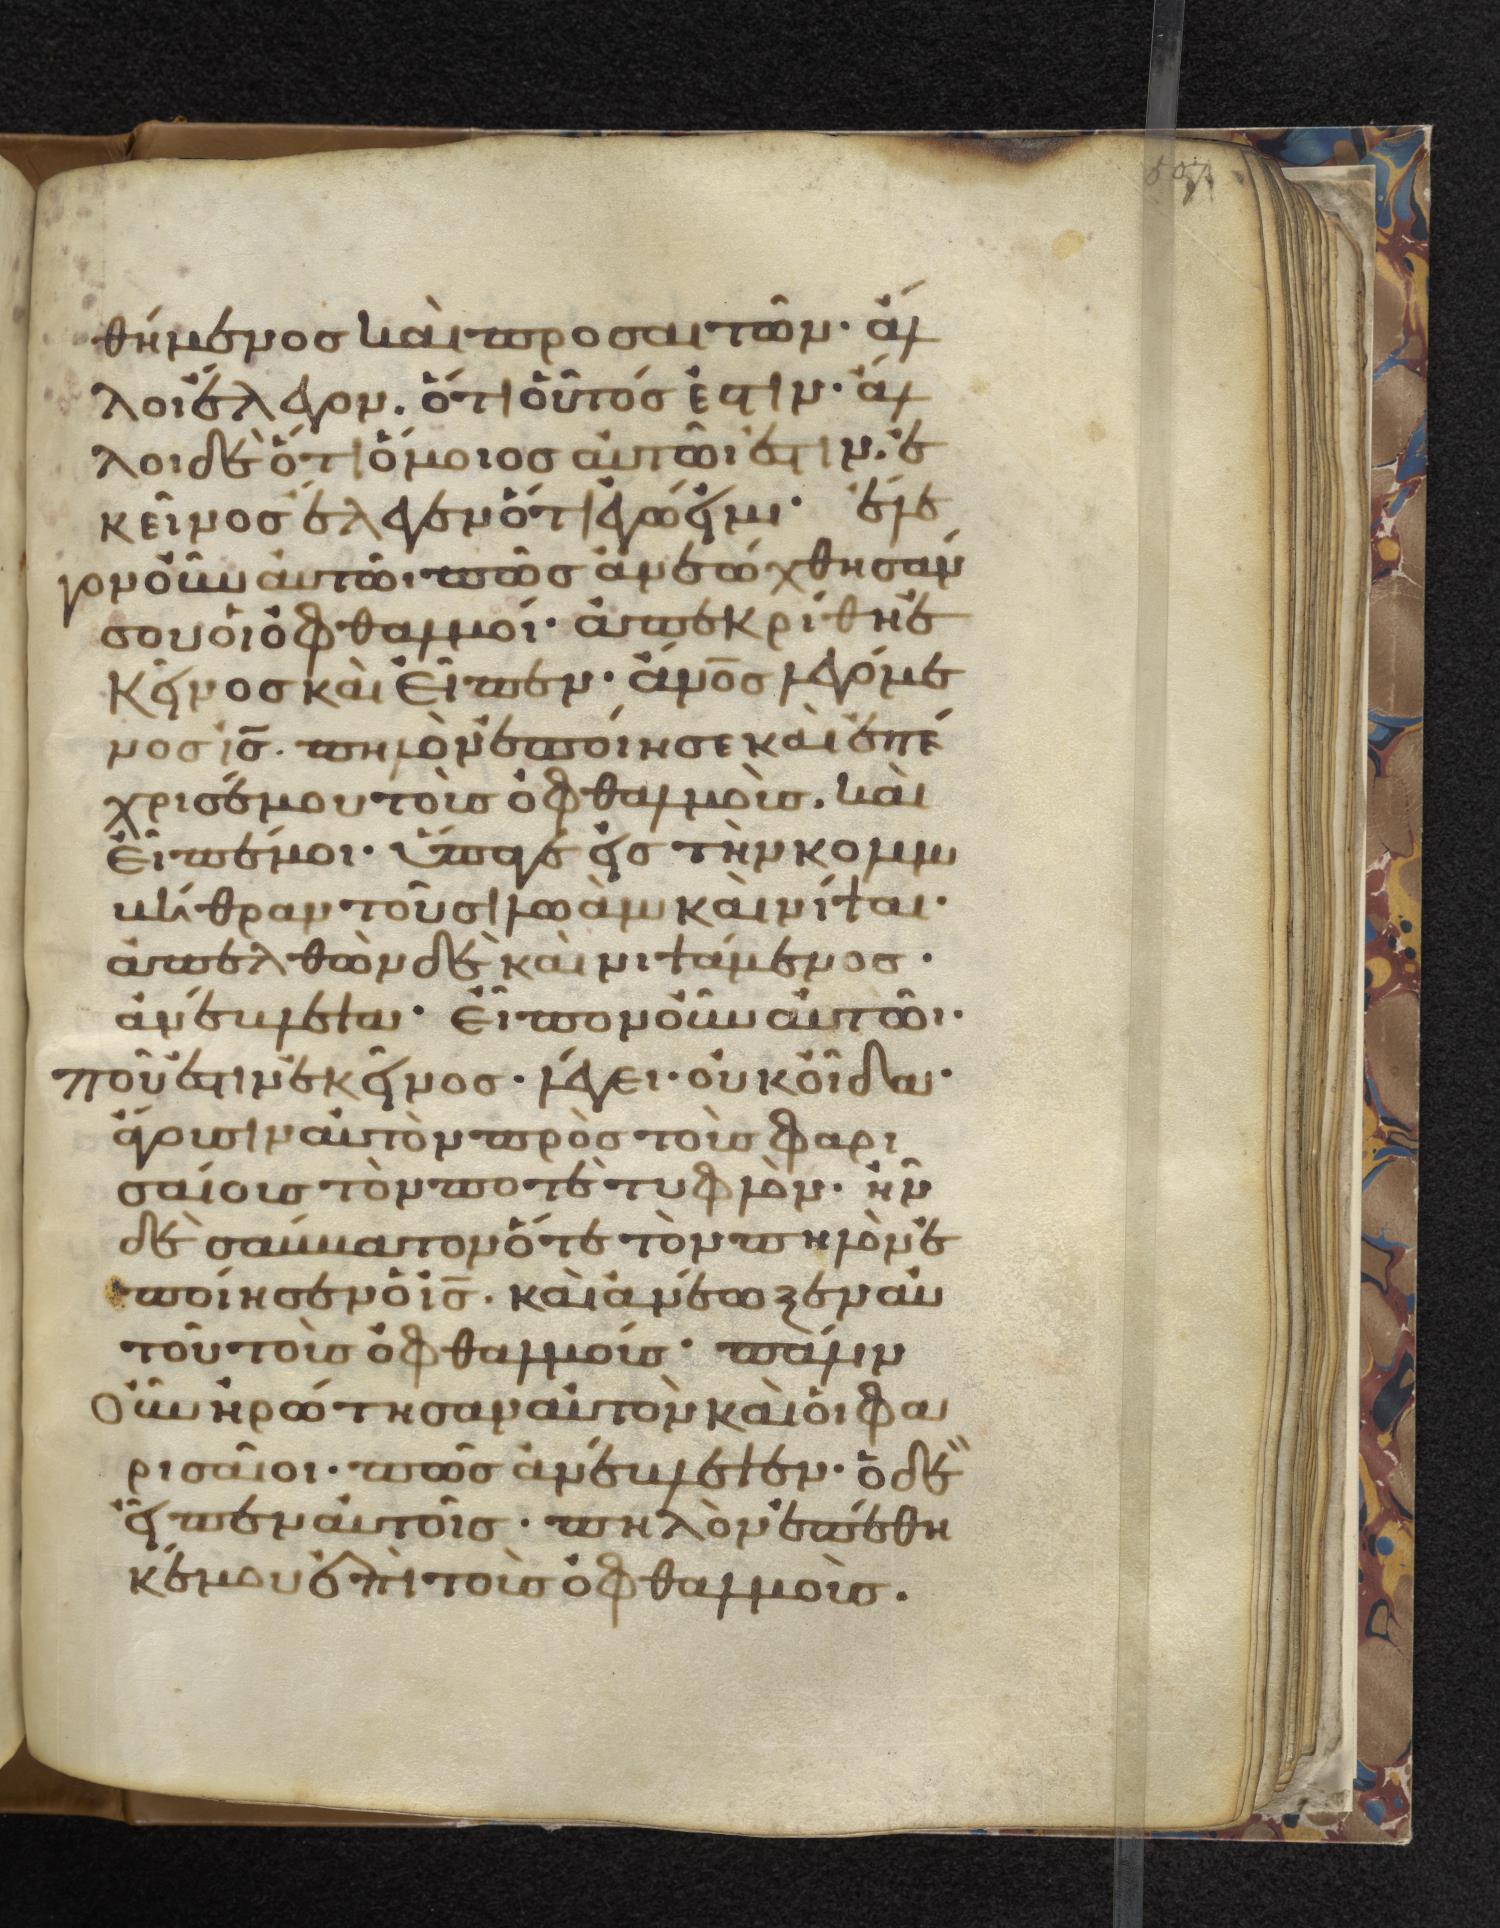 θήμενος καὶ προσαιτῶν· ἄλ
λοι ἔλεγον. ὅτι οὗτός ἐστιν· ἄλ
λοι δὲ ὅτι ὅμοιος αὐτῶι ἐστιν. ἐ
κεῖνος ἔλεγεν ὅτι ἐγώ εἰμι· ἔλε
γον οὖν αὐτῶι· πῶς ἀνεώχθησάν
σου οἱ ὀφθαλμοί· ἀπεκρίθη ἐ
κεῖνος καὶ εἶπεν· ἄνο̅ς λεγόμε
νος ι̅ς̅. πηλὸν ἐποίησε καὶ ἐπέ
χρισέ μου τοὺς ὀφθαλμοὺς. καὶ
εἶπέ μοι· ὕπαγε εἰς τὴν κολυμ
βήθραν τοῦ σιλωὰμ καὶ νίψαι·
ἀπελθὼν δὲ καὶ νιψάμενος·
ἀνέβλεψα· εἶπον οὖν αὐτῶι·
ποῦ ἐστιν ἐκεῖνος· λέγει· οὐκ οἶδα·
ἄγουσιν αὐτὸν πρὸς τοὺς φαρι
σαίους τὸν ποτὲ τυφλὸν· ἦν
δὲ σάββατον ὅτε τὸν πηλὸν ἐ
ποίησεν ὁ ι̅ς̅. καὶ ἀνέωξεν αὐ
τοῦ τοὺς ὀφθαλμούς· πάλιν
οὖν ἠρώτησαν αὐτὸν καὶ οἱ φα
ρισαῖοι· πῶς ἀνέβλεψεν· ὁ δὲ
εἶπεν αὐτοῖς· πηλὸν ἐπέθη
κέ μου ἐπὶ τοὺς ὀφθαλμοὺς.